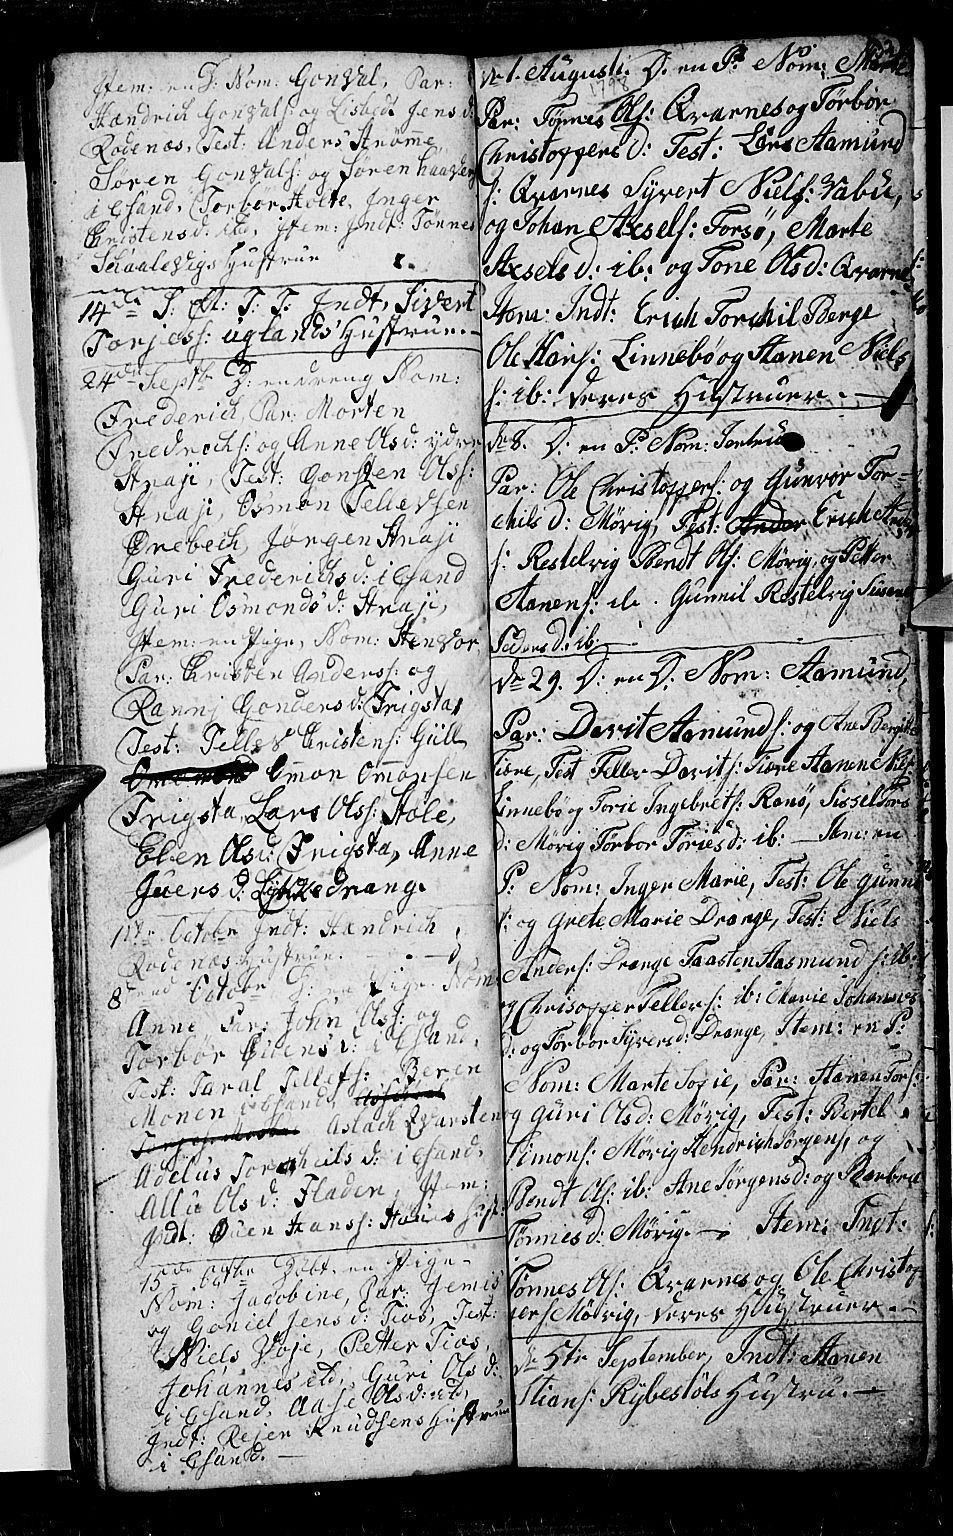 Item: en D: Nom: Gonval, Par:
Hændrich Gonvals: og Lisbedt Jens d:
Rodenæs, Test: Anders Strømme,
Søren Gonvals: og Søren Haaverg
i Chsand, Torbør Holte, Inger
Christensd: ibd, Item: Indt: Tønnes
Schaalevigs Hustrue
14de S: Eft: T: F: Indt, Sivert
Torjess: uglands Hustrue.
24de Septbr D: en dreng Nom:
Frederich, Par: Morten
Fredrochs: og Anne Olsd: ydre
Straji, Test: Gonsten Olss:
Straji, Osmon Tellevsen
Drebech, Jørgen Straji
Guri Frederichsd: i Chsand
Guri Osmondsd: Straji,
Item: en Pige, Nom: Stenvor
Par: Christen Anderss: og
Ranni Gondersd: Frigstad
Test: Tellev Christens: Gill
Omon Omonsen
Frigsta, Lars Olss: Stole,
Eben Olsd: Frigsta, Anne
Juers d: Lykkedrang.
1ste Octobr Indt: Hændrich
Rodenæs Hustrue.
8 Octobr D: en Pige Nom:
Anne Par: John Olss: og
Torbør Evensd: i Chsand,
Test: Taral Tellefs: Beren
Monen i Chsand,
Aslach Qvarsten
Adelus Torcheils d: i Chsand,
Allis Ols d: Fladen, Item:
Indt: Even Hanss: Hustr:
15de Octbr Døbt en Pige
Nom: Jacobine, Par: Jemis
og Goniel Jensd: Tiøs, Test:
Niels Voje, Petter Tios,
Johannes ibd, Guri Ols d:
i Chsand, Aase Olsd: ibd,
Indt: Rejer Knudsens Hustrue
i Chsand.
d: 1. Augusti. D: en P: Nom: Marte
1798
Par: Tønnes Ols: Qvarnes og Tørbor
Christoppers d: Test: Lars Aamund
s: Qvarnes Syvert Niels: Vabu,
og Johan Axsels: Torsø, Marte
Axsels d: ib: og Tone Olsd: Qvarnes
Item: Indt: Erich Torchil Berge
Ole Hans: Linnebø og Aanen Niels
s: ib: Deres Hustruer.
d: 8. D: en P: Nom: Jertru
Par: Ole Christoppers: og Gunvor Tor-
chils d: Mørig, Test: Erich Anders
s: Restelvig Bendt Ols: Mørig, og Petter
Aanens: ib. Gunnil Restelvig Susane
Peders d: ib:
d: 29. D: en D: Nom: Aamund,
Par: Davit Aamund s: og Ane Bergitte
Tiøre, Test Tellev Davits: Tiøre Aanen Niels:
Linnebø og Torie Ingebrets: Ranø, Sissel Tors
d: Mørig Torbor Tories d: ib: Item: en
P: Nom: Inger Marie, Test: Ole Gunne
s: og Grete Marie Drange, Test: Niels
Anders: Drange Taasten Aasmund s: ib:
og Chrisopper Tellevs: ib: Marie Johannes
d: og Torbor Syversd: Drange, Item: en P:
Nom: Marte Sofie, Par: Aanen Tors:
og Guri Olsd: Mørig, Test: Bertel
Simons: Mørig Hendrich Jørgens, og
Bendt Ols: ib: Ane Jørgensd: og Barbru
Tønnes d: Mørig. Item: Indt:
Tønnes Ols: Qvarnes og Ole Christop
pers Mørig, Deres Hustruer.
d: 5te September, Indt: Aanen
Stians: Rybestøls Hustru.